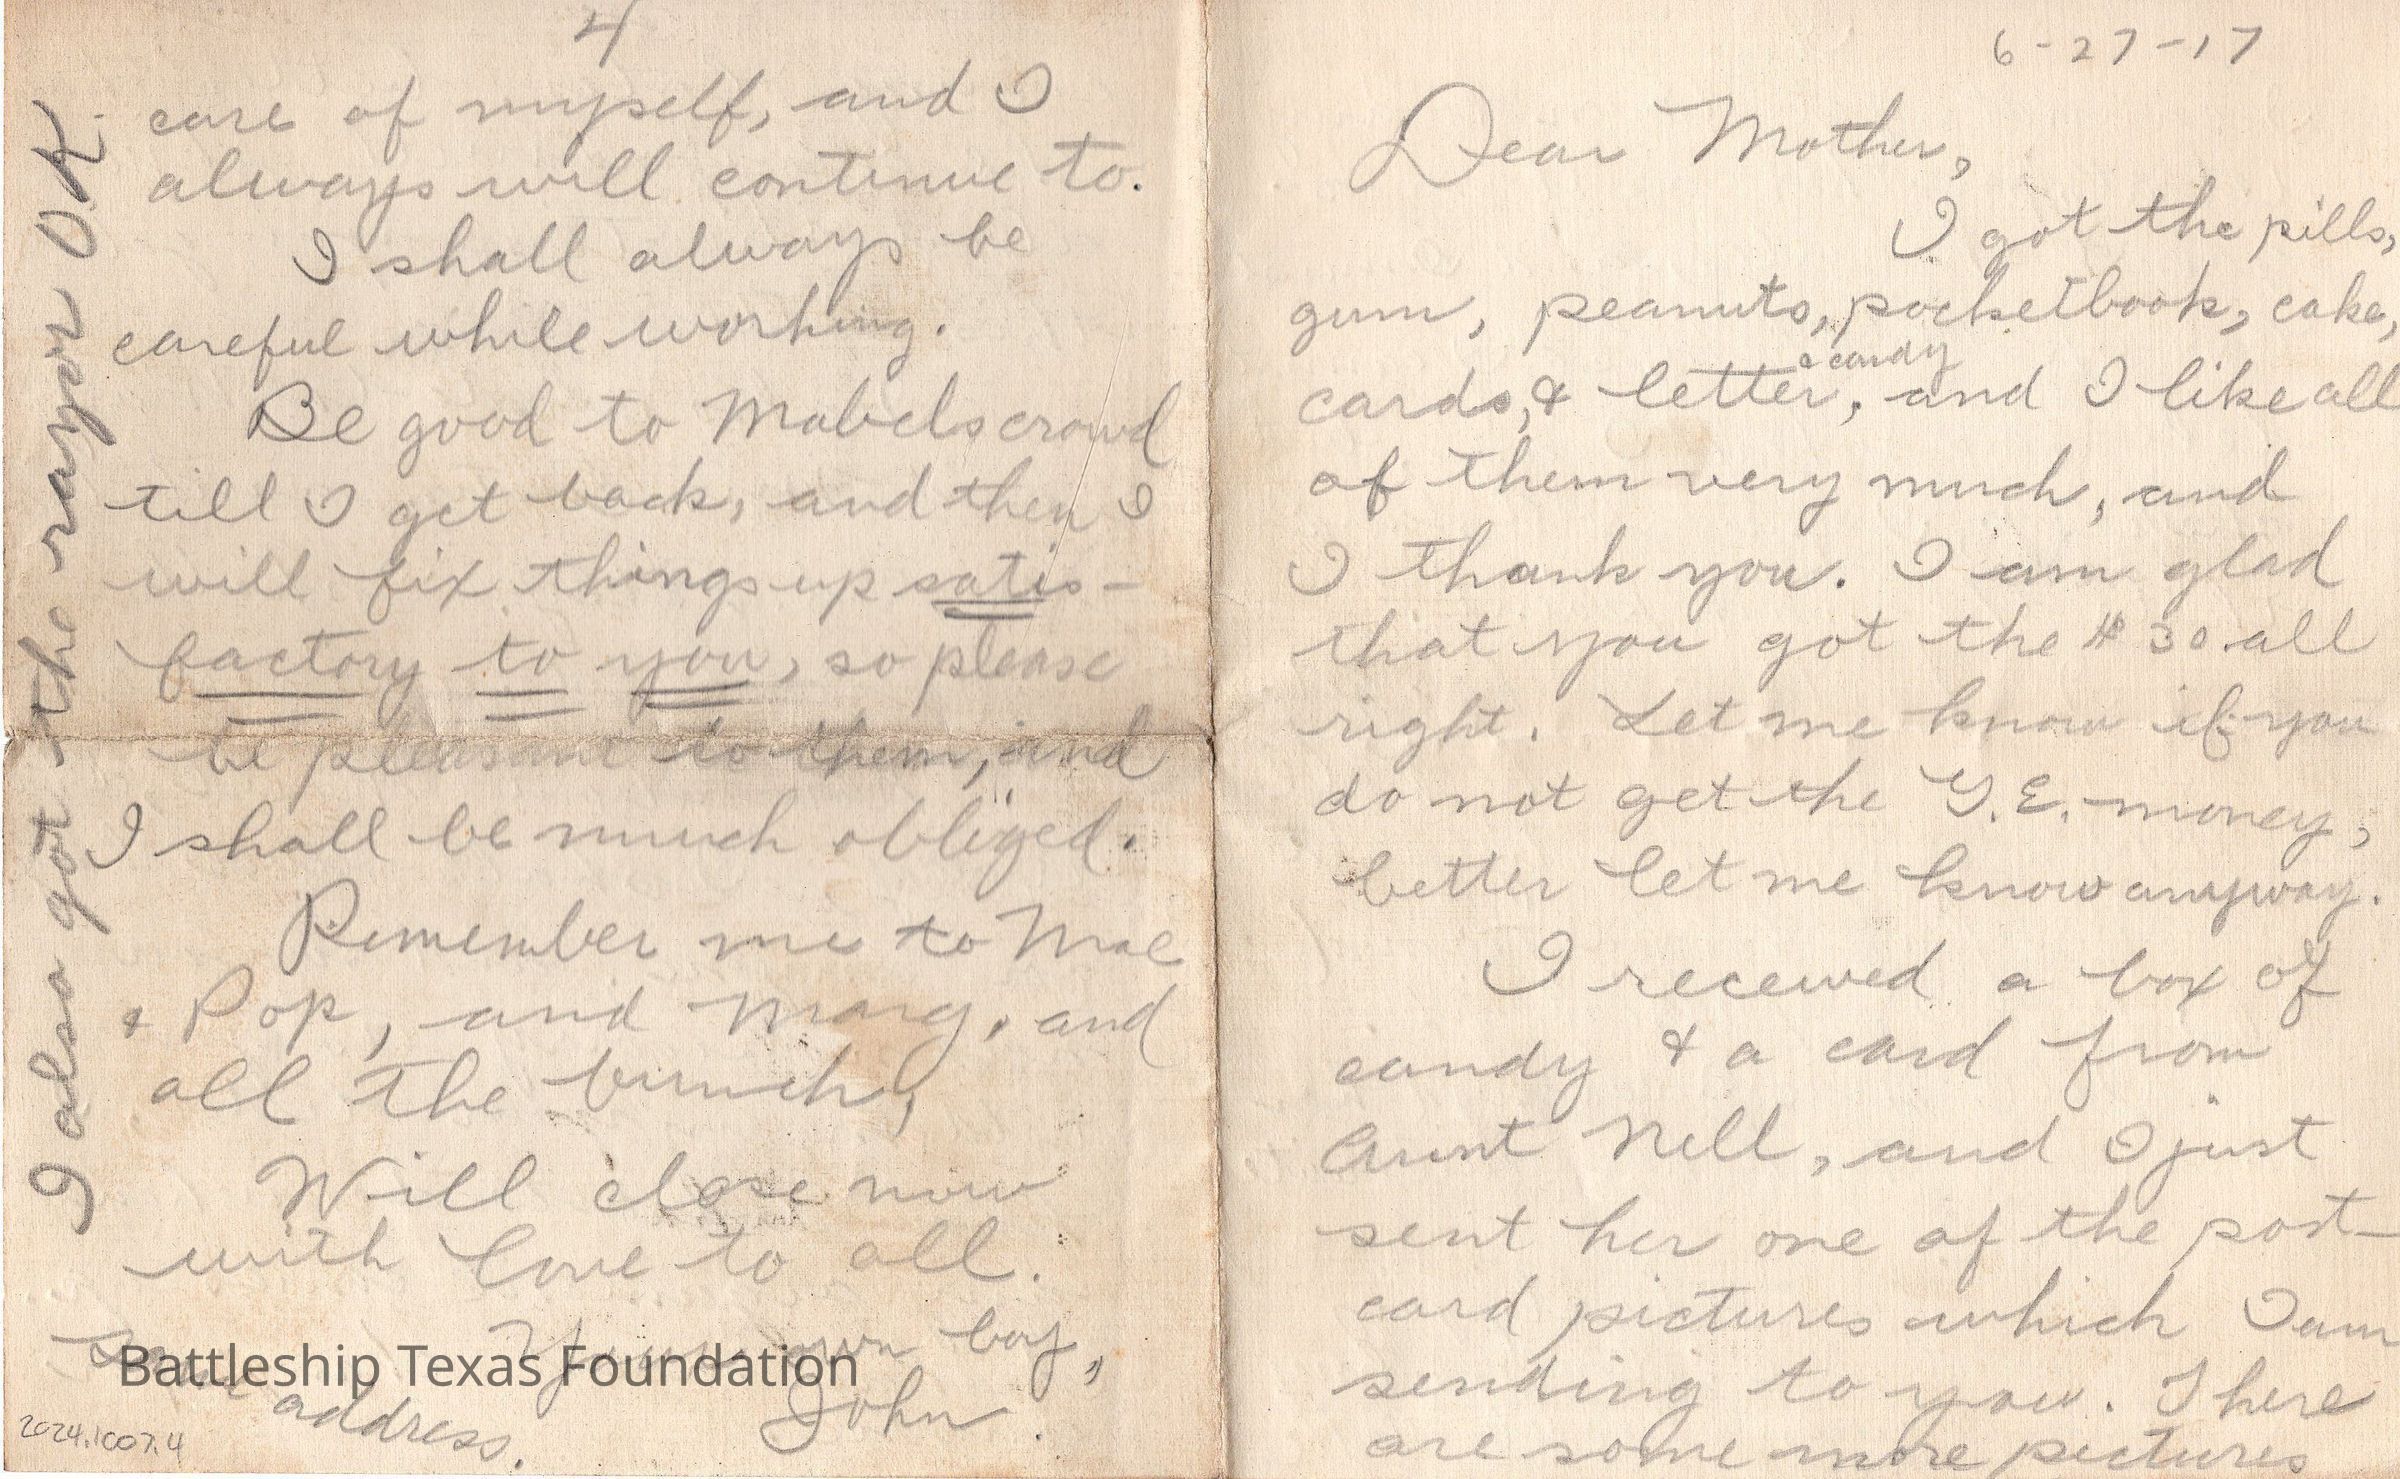 6-27-17
Dear Mother,
I got the pills,
gum, peanuts, pocketbook, cake,
& candy
cards, & letter, and I like all
of them very much, and
I thank you. I am glad
that you got the $30. all
right. Let me know if you
do not get the G.E. money,
better let me know anyway.
I received a box of
candy & a card from
Aunt Nell, and I just
sent her one of the post-
card pictures which I am
sending to you. There
are some more pictures
4
care of myself, and I
always will continue to.
I shall always be
careful while working.
Be good to Mabels crowd
till I get back, and then I
will fix things up satis-
factory to you, so please
be pleasant to them, and
I shall be much obliged.
Remember me to Mae
& Pop, and Marg. and
all the bunch,
Will close now
with love to all.
Your own boy,
John.
Same address.
I also got the razor OK.
Battleship Texas Foundation
2024.1007.4